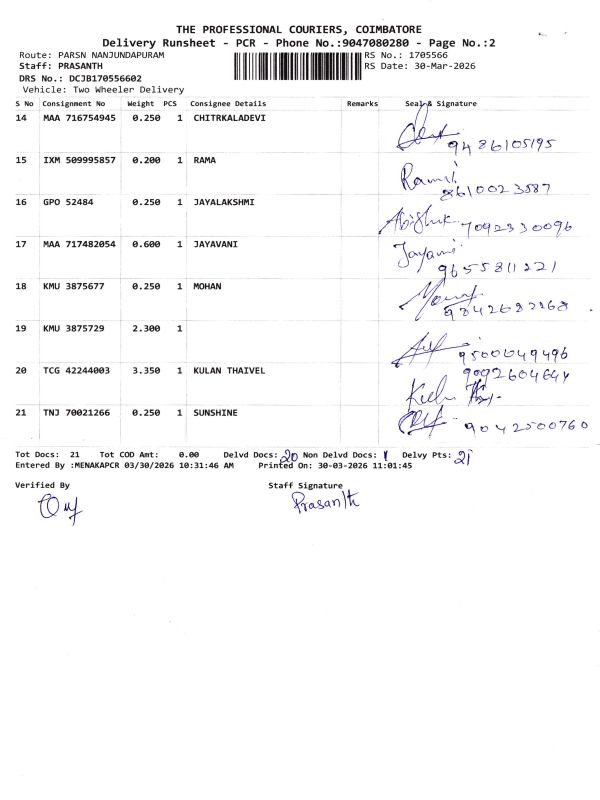 THE PROFESSIONAL COURIERS, COIMBATORE
Delivery Runsheet - PCR - Phone No.:9047080280 - Page No.:2
Route: PARSN NANJUNDAPURAM RS No.: 1705566
Staff: PRASANTH RS Date: 30-Mar-2026
DRS No.: DCJB170556602
Vehicle: Two Wheeler Delivery
S No Consignment No Weight PCS Consignee Details Remarks Seal & Signature
14 MAA 716754945 0.250 1 CHITRKALADEVI
9486105195
15 IXM 509995857 0.200 1 RAMA
8610023587
16 GPO 52484 0.250 1 JAYALAKSHMI
7092330096
17 MAA 717482054 0.600 1 JAYAVANI
9655811221
18 KMU 3875677 0.250 1 MOHAN
19 KMU 3875729 2.300 1
9500049496
20 TCG 42244003 3.350 1 KULAN THAIVEL
9092604644
21 TNJ 70021266 0.250 1 SUNSHINE
9042500760
Tot Docs: 21 Tot COD Amt: 0.00 Delvd Docs: 20 Non Delvd Docs: 1 Delvy Pts: 21
Entered By :MENAKAPCR 03/30/2026 10:31:46 AM Printed On: 30-03-2026 11:01:45
Verified By Staff Signature
Prasanth